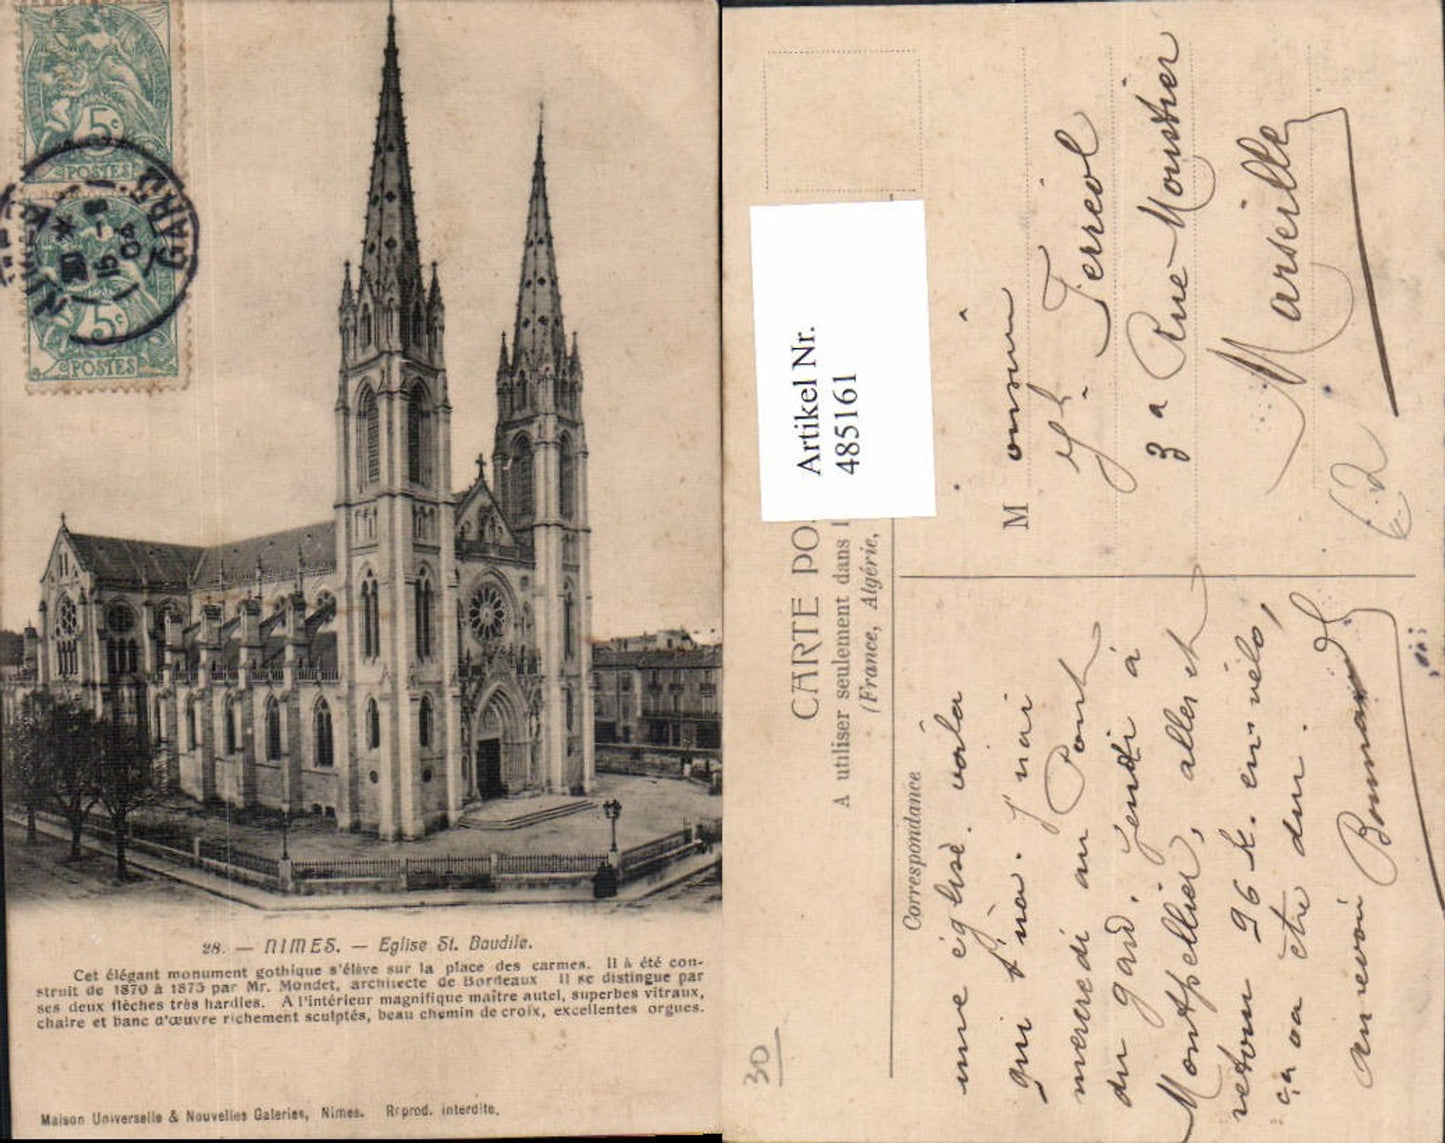 5c
POSTES
5c
POSTES
NIMES GARD
15 - 8
04
28. — NIMES. — Eglise St. Baudile.
Cet élégant monument gothique s'élève sur la place des carmes. Il à été con-
struit de 1870 à 1875 par Mr. Mondet, architecte de Bordeaux Il se distingue par
ses deux flèches très hardies. A l'intérieur magnifique maître autel, superbes vitraux,
chaire et banc d'œuvre richement sculptés, beau chemin de croix, excellentes orgues.
Maison Universelle & Nouvelles Galeries, Nimes. Reprod. interdite.
Artikel Nr.
485161
CARTE PO
A utiliser seulement dans l
(France, Algérie,
Correspondance
Monsieur
Ferréol
3 a Rue Moustier
Marseille
une église. voila
qui t'ira. J'irai
mercredi au Pont
du gard. Jeudi à
Montpellier, aller et
retour 96 k. en vélo,
ça va être dur.
au revoir
30